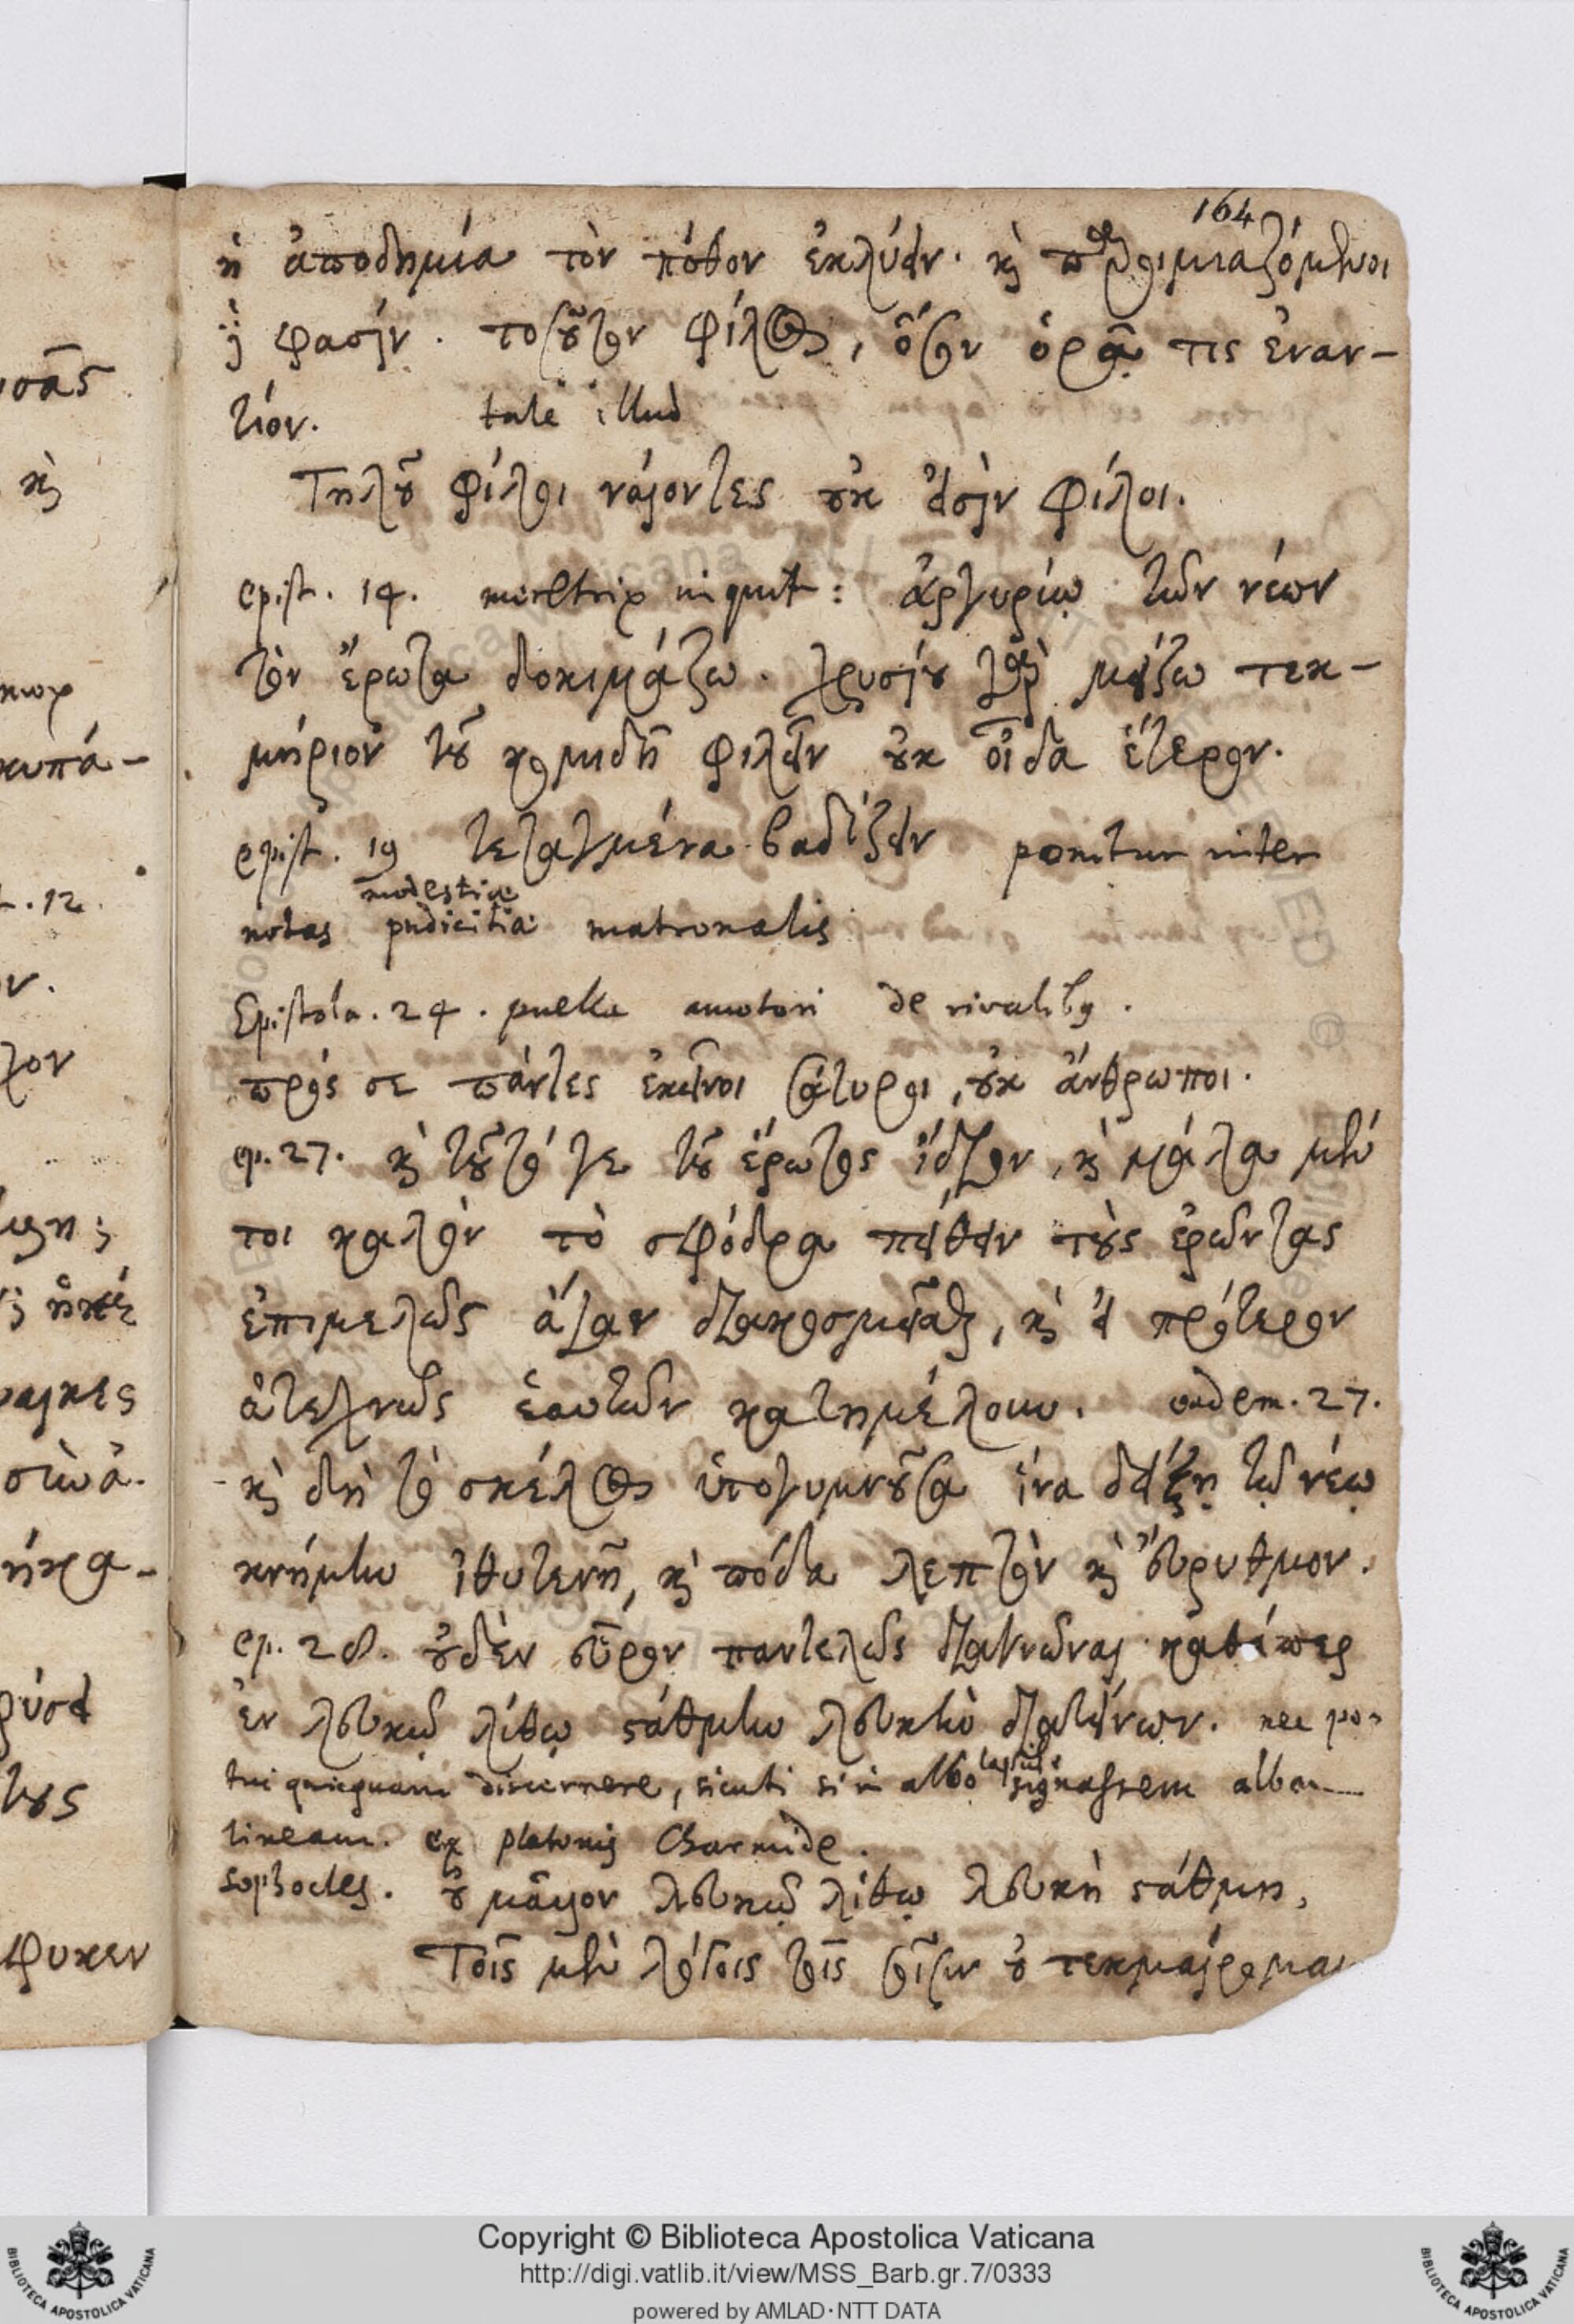 164
ἡ ἀποδημία τὸν πόθον ἐκλύειν. καὶ παροιμιαζόμενοι
φασίν. τοσοῦτον φίλος, ὅσον ὁρᾷ τις ἐναν-
τίον. tale illud
Τηλοῦ φίλοι ναίοντες οὐκ εἰσὶν φίλοι.
epist. 14. meretrix inquit: ἀργυρίῳ τῶν νέων
τὸν ἔρωτα δοκιμάζω. χρυσίου γὰρ μείζω τεκ-
μήριον τοῦ κομιδῆ φιλεῖν οὐκ οἶδα ἕτερον.
epist. 19 τεταγμένα βαδίζειν ponitur inter
modestiæ
notas pudicitiæ matronalis
Epistola. 24. puella amatori de rivalibus.
πρός σε πάντες ἐκεῖνοι σάτυροι, οὐκ ἄνθρωποι.
ep. 27. καὶ τοῦτό γε τοῦ ἔρωτος ἴδιον, καὶ μάλα μέν
τοι καλὸν τὸ σφόδρα πείθειν τοὺς ἐρῶντας
ἐπιμελῶς ἄγαν διακοσμεῖσθαι, καὶ εἰ πρότερον
ἀτεχνῶς ἑαυτῶν κατημέλουν. eadem. 27.
καὶ δὴ τὸ σκέλος ὑπογυμνοῦσα ἵνα δείξῃ τῷ νέῳ
κνήμην ἰθυτενῆ, καὶ πόδα λεπτὸν καὶ εὔρυθμον.
ep. 28. οὐδὲν εὗρον παντελῶς διαγνῶναι καθάπερ
ἐν λευκῷ λίθῳ στάθμην λευκὴν διατείνων. nec po-
tui quicquam discernere, sicuti si in albo lapide signassem albam
lineam. ex platonis Charmide.
Sophocles. οὐ μᾶλλον λευκῷ λίθῳ λευκὴ στάθμη,
Τοῖς μὲν λόγοις τοῖς σοῖσιν οὐ τεκμαίρομαι
σᾶς
καὶ
κυπά-
t. 12.
ν.
χον
τους
φυκεν
Copyright © Biblioteca Apostolica Vaticana
http://digi.vatlib.it/view/MSS_Barb.gr.7/0333
powered by AMLAD·NTT DATA
BIBLIOTECA APOSTOLICA VATICANA
BIBLIOTECA APOSTOLICA VATICANA